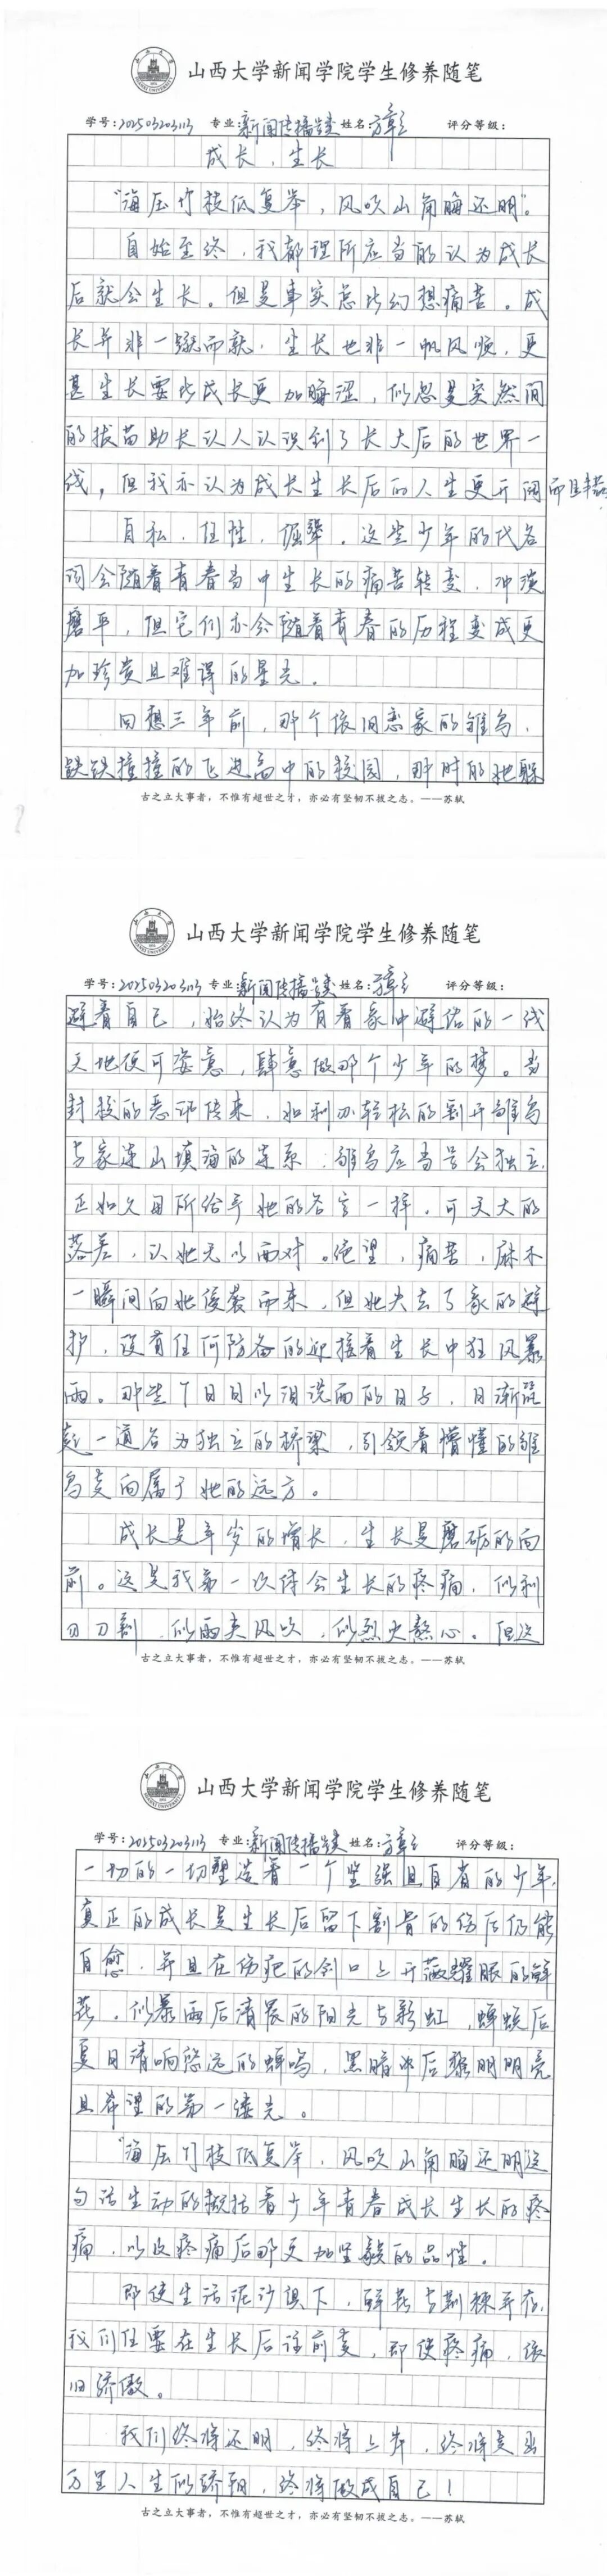 山西大学新闻学院学生修养随笔
学号：202503203113 专业：新闻传播学类 姓名： 评分等级：
成长，生长
“海压竹枝低复举，风吹山角晦还明”。
自始至终，我都理所应当的认为成长
后就会生长。但是事实总比幻想痛苦。成
长并非一蹴而就，生长也非一帆风顺，更
甚生长要比成长更加晦涩，似忽是突然间
的拔苗助长让人认识到了长大后的世界一
线，但我亦认为成长生长后的人生更开阔而且丰富
自私，任性，倔犟。这些少年的代名
词会随着青春当中生长的痛苦转变，冲淡
磨平，但它们亦会随着青春的历程变成更
加珍贵且难得的星光。
回想三年前，那个依旧恋家的雏鸟，
跌跌撞撞的飞进高中的校园，那时的她躲
古之立大事者，不惟有超世之才，亦必有坚韧不拔之志。——苏轼
山西大学新闻学院学生修养随笔
学号：202503203113 专业：新闻传播学类 姓名： 评分等级：
避着自己，始终认为有着家中避佑的一线
天地便可恣意，肆意做那个少年的梦。当
封校的恶讯传来，如利刃轻松的割开雏鸟
与家连山填海的连系，雏鸟应当学会独立，
正如父母所给予她的名言一样，可天大的
落差，让她无以面对。绝望，痛苦，麻木
一瞬间向她侵袭而来，但她失去了家的避
护，没有任何防备的迎接着生长中狂风暴
雨。那些个日日以泪洗面的日子，日渐筑
起一道名为独立的桥梁，引领着懵懂的雏
鸟走向属于她的远方。
成长是年岁的增长，生长是磨砺的向
前。这是我第一次体会生长的疼痛，似利
刃刀割，似雨夹风吹，似烈火熬心。但这
古之立大事者，不惟有超世之才，亦必有坚韧不拔之志。——苏轼
山西大学新闻学院学生修养随笔
学号：202503203113 专业：新闻传播学类 姓名： 评分等级：
一切的一切塑造着一个坚强且自省的少年，
真正的成长是生长后留下割骨的伤后仍能
自愈，并且在伤疤的创口上开满耀眼的鲜
花，似暴雨后清晨的阳光与彩虹，蝉蜕后
夏日清响悠远的蝉鸣，黑暗中后黎明明亮
且希望的第一缕光。
“海压竹枝低复举，风吹山角晦还明这
句话生动的概括着少年青春成长生长的疼
痛，以及疼痛后那更加坚毅的品性。
即使生活泥沙俱下，鲜花与荆棘并存，
我们任要在生长后往前走，即使疼痛，依
旧骄傲。
我们终将还明，终将上岸，终将走出
万里人生似骄阳，终将做成自己！
古之立大事者，不惟有超世之才，亦必有坚韧不拔之志。——苏轼